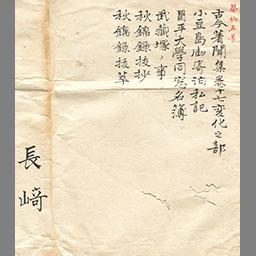 古今著聞集巻十七変化之部
小豆島御寄泊私記
昌平大學同窓名簿
武藏塚ノ事
秋錦録抜抄
秋錦録抜萃
長﨑